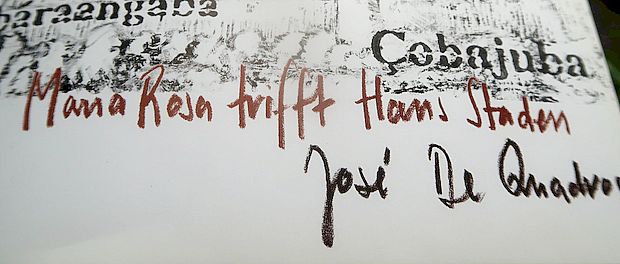 baraangaba
Çobajuba
Maria Rosa trifft Hans Staden
José De Quadros